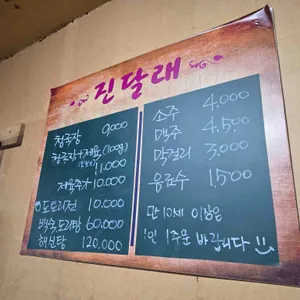 진달래
청국장 9,000
청국장+제육(100g)
11,000
제육추가 10,000
도토리전 10,000
백숙,도리탕 60,000
해신탕 120,000
소주 4,000
맥주 4,500
막걸리 3,000
음료수 1,500
만 10세 이상은
1인 1주문 바랍니다